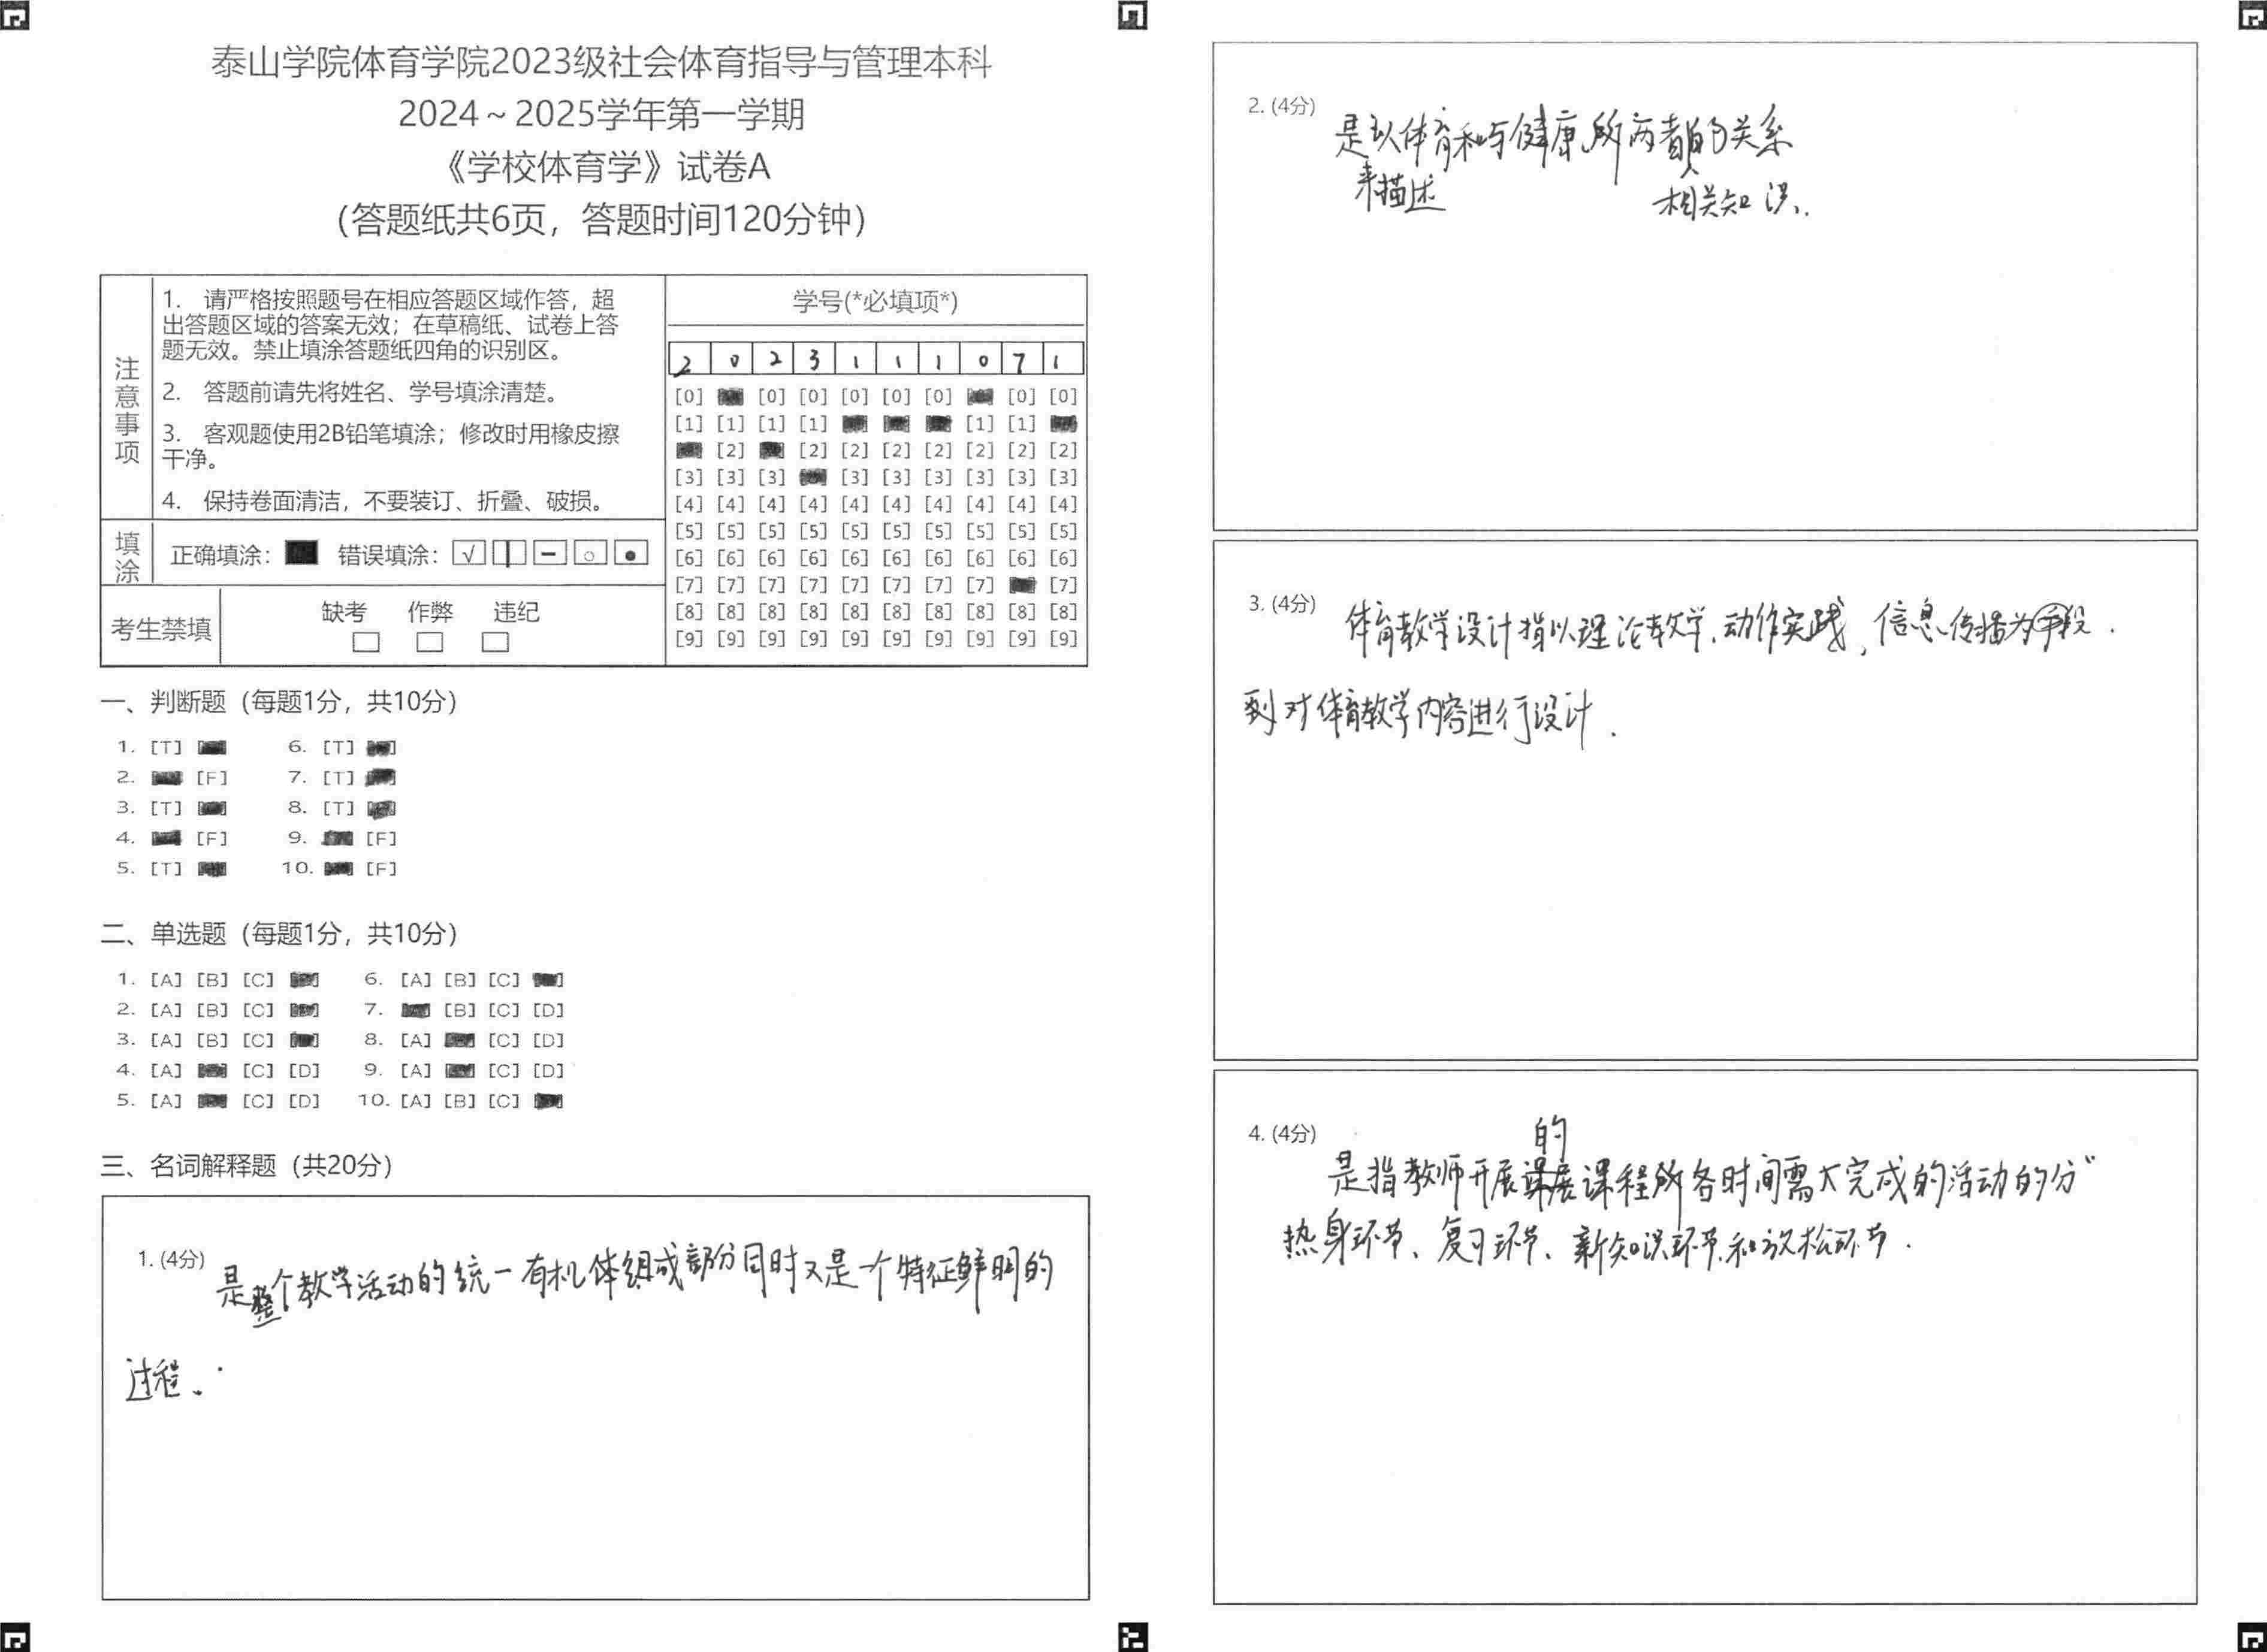 泰山学院体育学院2023级社会体育指导与管理本科
2024～2025学年第一学期
《学校体育学》试卷A
（答题纸共6页，答题时间120分钟）
注意事项
1. 请严格按照题号在相应答题区域作答，超
出答题区域的答案无效；在草稿纸、试卷上答
题无效。禁止填涂答题纸四角的识别区。
2. 答题前请先将姓名、学号填涂清楚。
3. 客观题使用2B铅笔填涂；修改时用橡皮擦
干净。
4. 保持卷面清洁，不要装订、折叠、破损。
填涂
正确填涂： 错误填涂：
考生禁填
缺考 作弊 违纪
学号(*必填项*)
2 0 2 3 1 1 1 0 7 1
[0] [0] [0] [0] [0] [0] [0] [0]
[1] [1] [1] [1] [1] [1]
[2] [2] [2] [2] [2] [2] [2] [2]
[3] [3] [3] [3] [3] [3] [3] [3] [3]
[4] [4] [4] [4] [4] [4] [4] [4] [4] [4]
[5] [5] [5] [5] [5] [5] [5] [5] [5] [5]
[6] [6] [6] [6] [6] [6] [6] [6] [6] [6]
[7] [7] [7] [7] [7] [7] [7] [7] [7]
[8] [8] [8] [8] [8] [8] [8] [8] [8] [8]
[9] [9] [9] [9] [9] [9] [9] [9] [9] [9]
一、判断题（每题1分，共10分）
1. [T] 6. [T]
2. [F] 7. [T]
3. [T] 8. [T]
4. [F] 9. [F]
5. [T] 10. [F]
二、单选题（每题1分，共10分）
1. [A] [B] [C] 6. [A] [B] [C]
2. [A] [B] [C] 7. [B] [C] [D]
3. [A] [B] [C] 8. [A] [C] [D]
4. [A] [C] [D] 9. [A] [C] [D]
5. [A] [C] [D] 10. [A] [B] [C]
三、名词解释题（共20分）
1. (4分) 是整个教学活动的统一有机体组成部分同时又是一个特征鲜明的
过程。
2. (4分) 是以体育和与健康所两者的关系
来描述 相关知识.
3. (4分) 体育教学设计指以理论教学.动作实践，信息传播为手段.
到对体育教学内容进行设计.
4. (4分) 的
是指教师开展课程所各时间需大完成的活动的分"
热身环节、复习环节、新知识环节和放松环节.